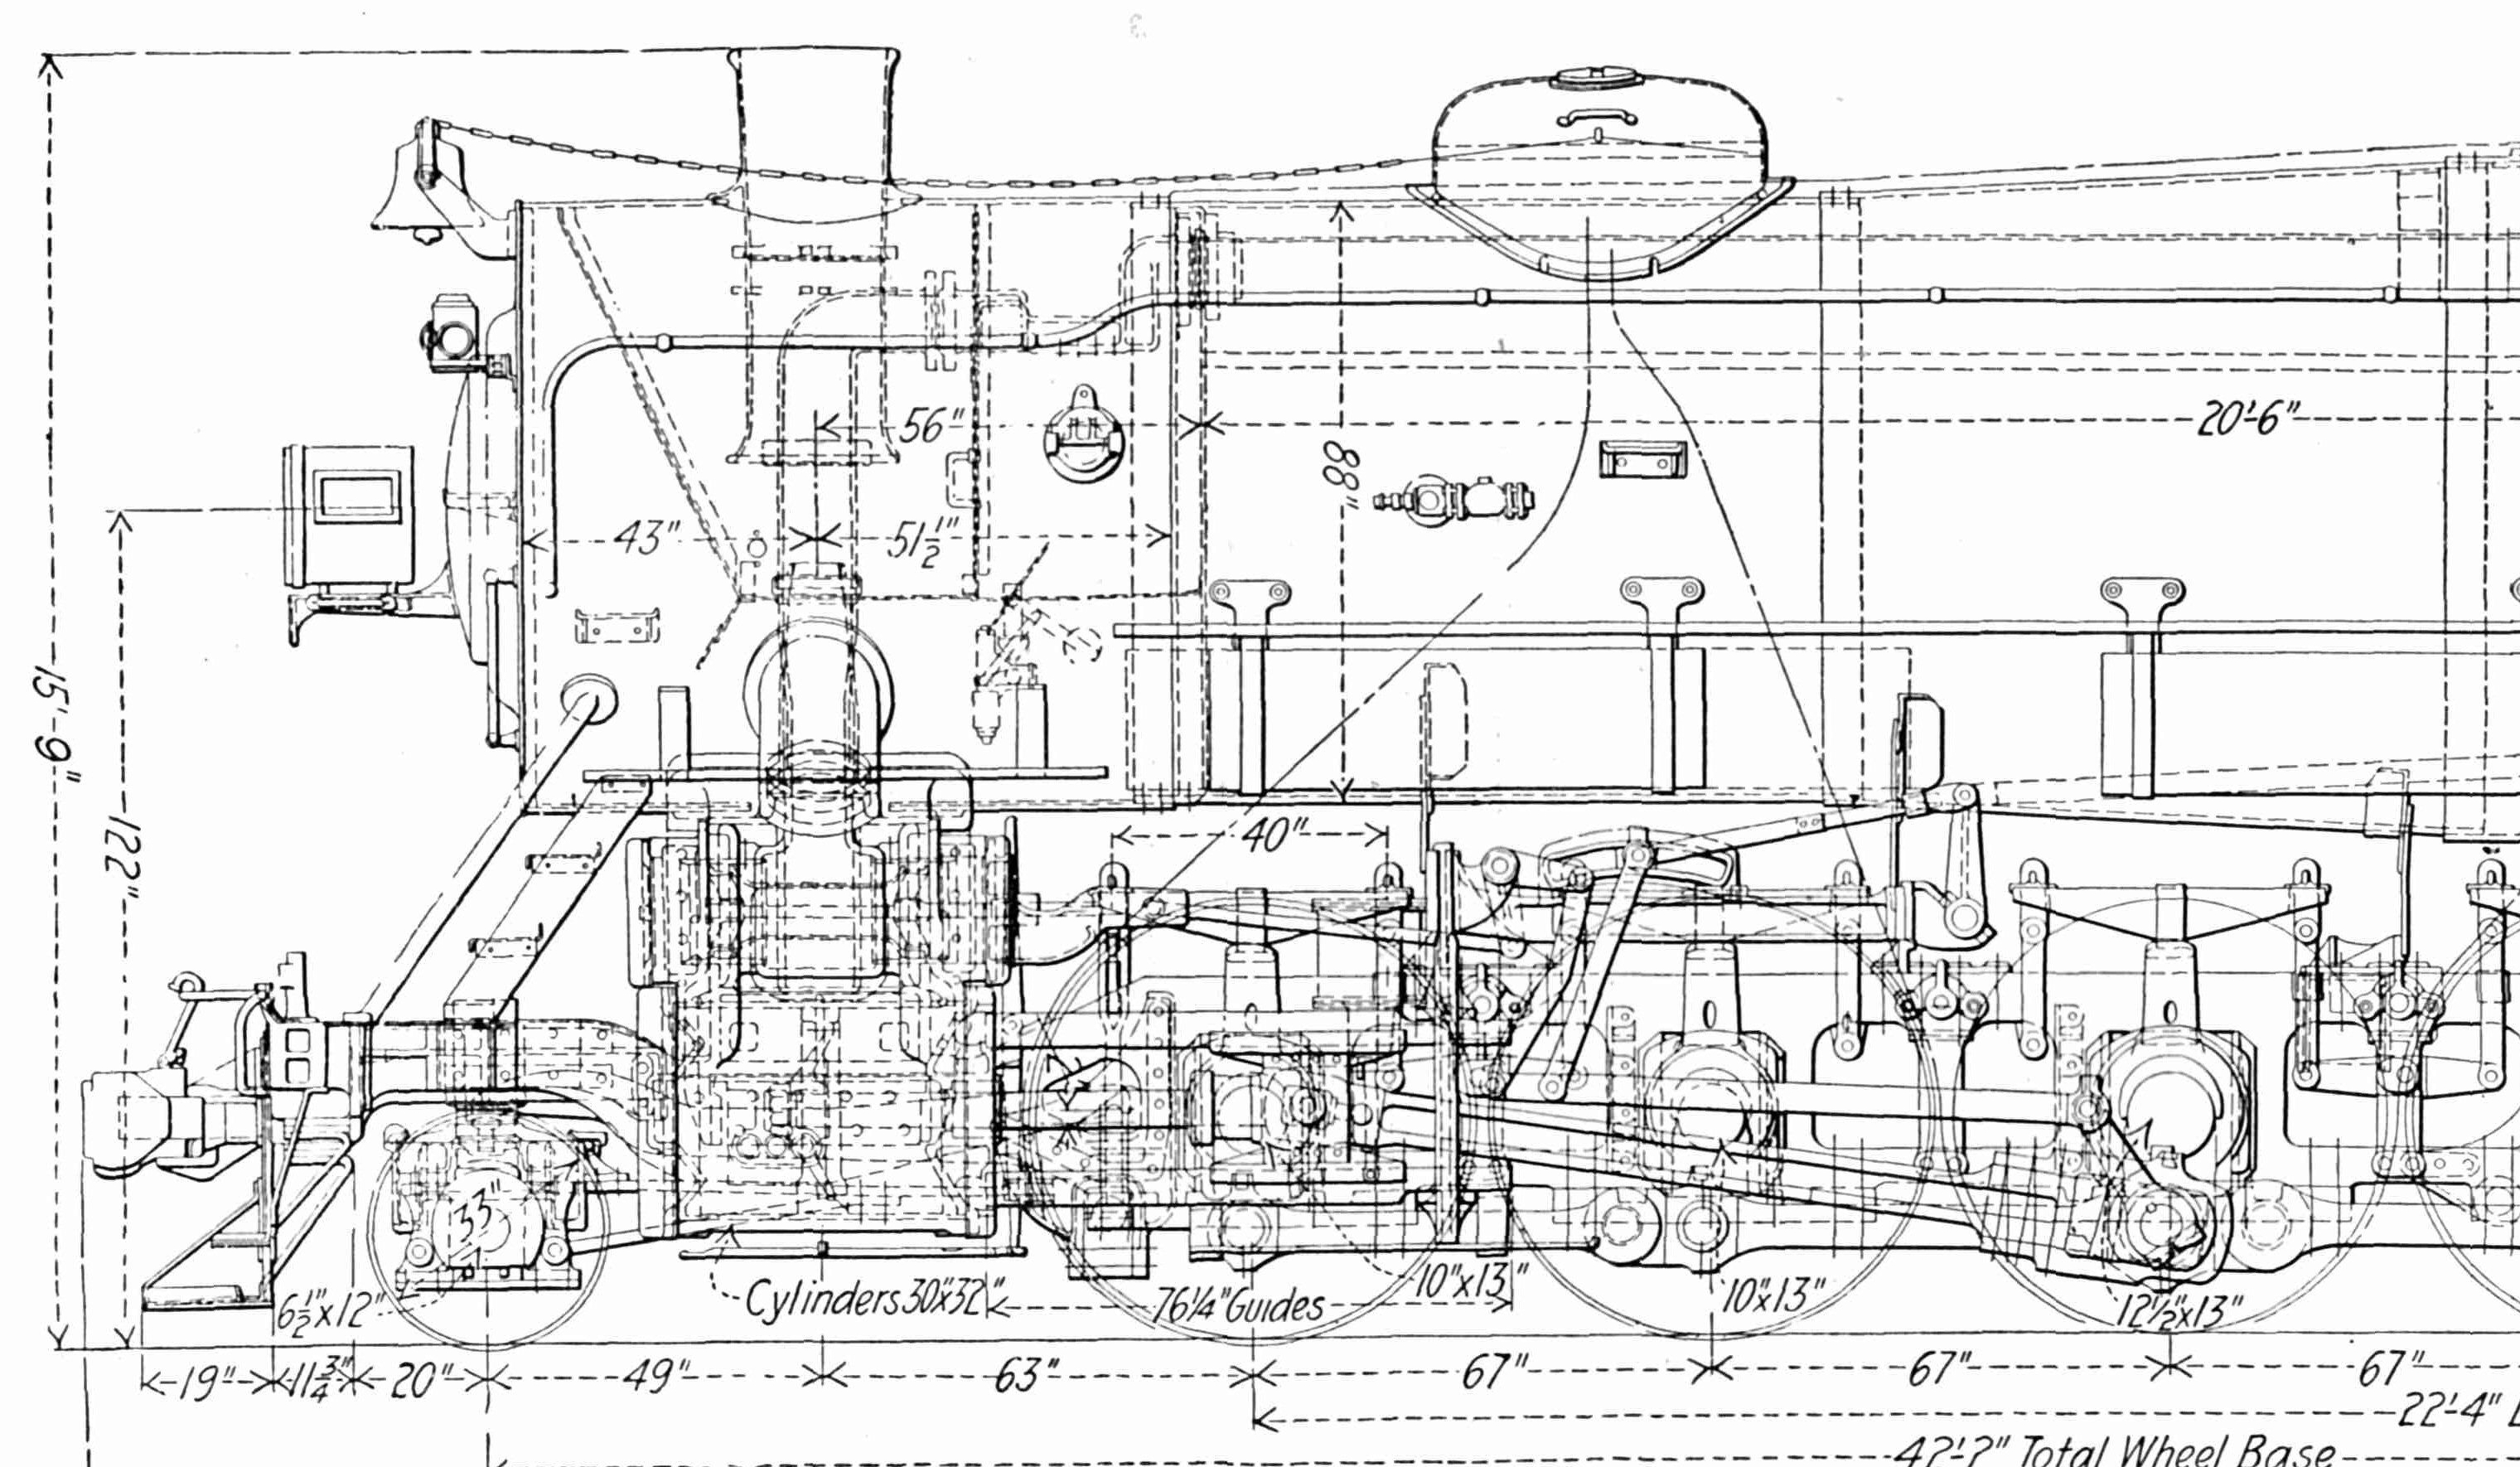 56"
20'-6"
88"
43"
51½"
15'-9"
122"
40"
33"
6½"x12"
Cylinders 30"x32"
76¼" Guides
10"x13"
10"x13"
12½"x13"
19"
11¾"
20"
49"
63"
67"
67"
67"
22'-4"
42'-2" Total Wheel Base